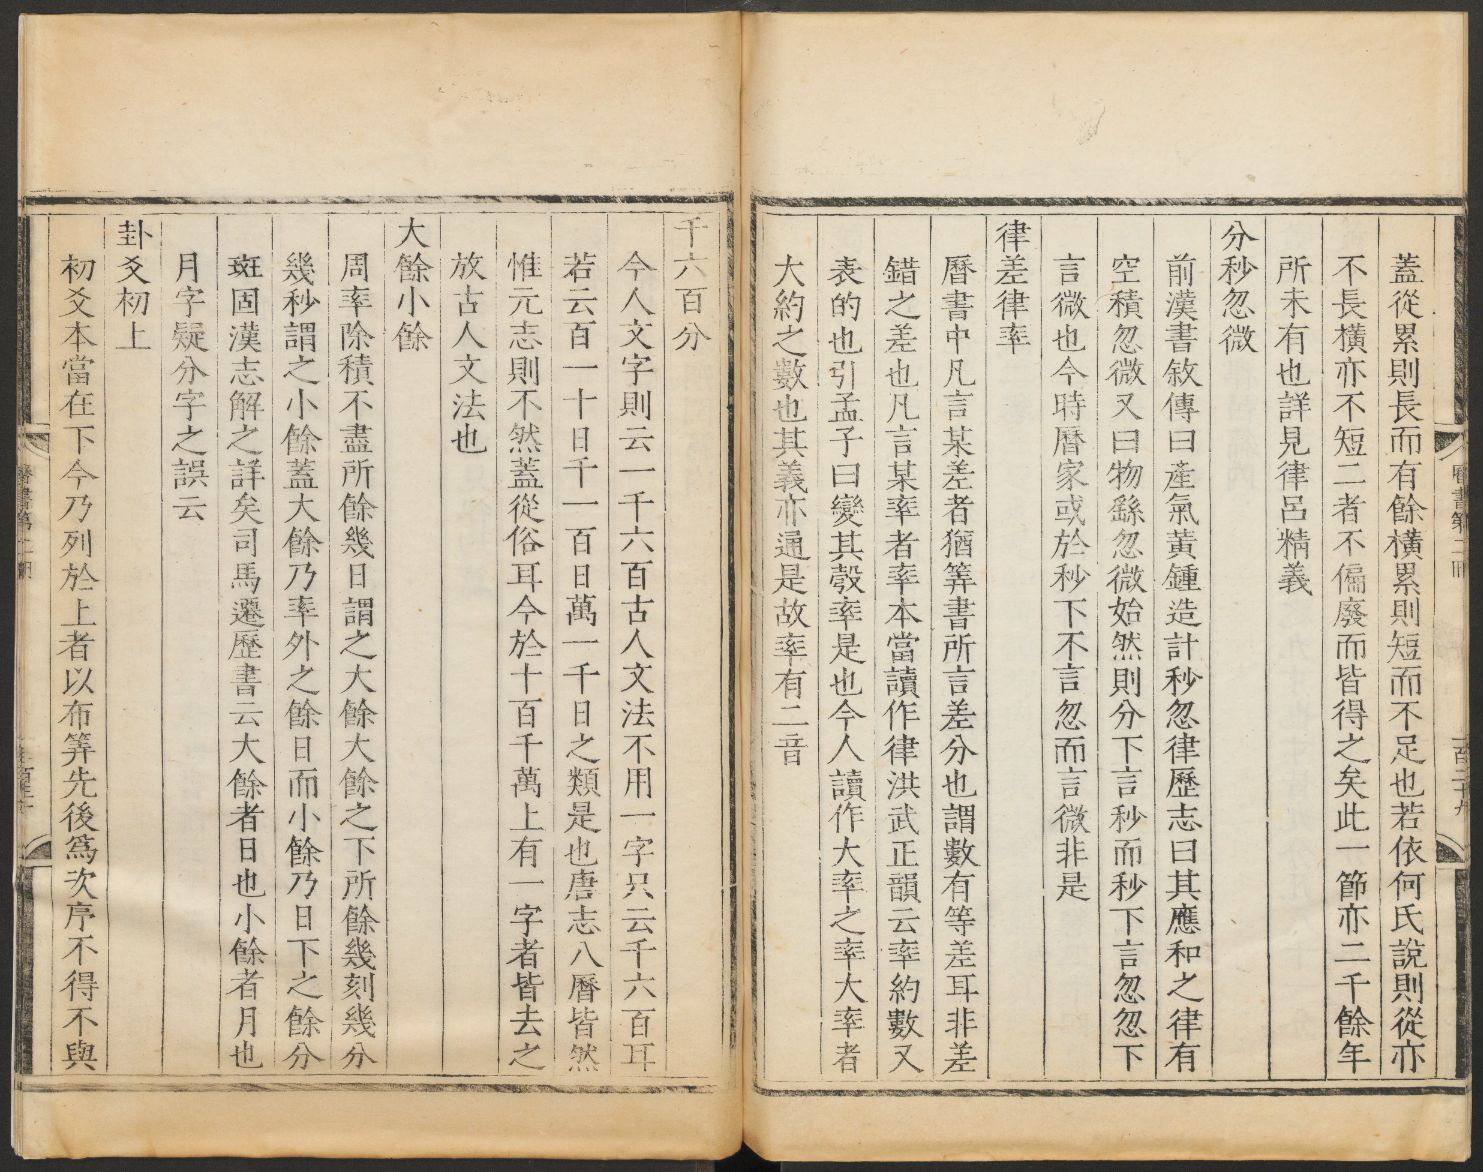 蓋從累則長而有餘橫累則短而不足也若依何氏說則從亦
不長橫亦不短二者不偏廢而皆得之矣此一節亦二千餘年
所未有也詳見律呂精義
分秒忽微
前漢書敘傳曰產氣黃鍾造計秒忽律歷志曰其應和之律有
空積忽微又曰物繇忽微始然則分下言秒而秒下言忽忽下
言微也今時曆家或於秒下不言忽而言微非是
律差律率
曆書中凡言某差者猶筭書所言差分也謂數有等差耳非差
錯之差也凡言某率者率本當讀作律洪武正韻云率約數又
表的也引孟子曰變其彀率是也今人讀作大率之率大率者
大約之數也其義亦通是故率有二音
曆書第二冊
一百二十九
千六百分
今人文字則云一千六百古人文法不用一字只云千六百耳
若云百一十日千一百日萬一千日之類是也唐志八曆皆然
惟元志則不然蓋從俗耳今於十百千萬上有一字者皆去之
放古人文法也
大餘小餘
周率除積不盡所餘幾日謂之大餘大餘之下所餘幾刻幾分
幾秒謂之小餘蓋大餘乃率外之餘日而小餘乃日下之餘分
班固漢志解之詳矣司馬遷歷書云大餘者日也小餘者月也
月字疑分字之誤云
卦爻初上
初爻本當在下今乃列於上者以布筭先後爲次序不得不與
曆書第二冊